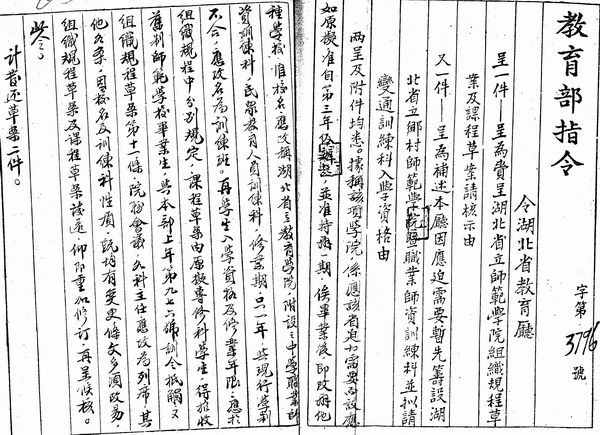 教育部指令
字第3796號
令湖北省教育廳
呈一件——呈為賫呈湖北省立師範學院組織規程草
案及課程草案請核示由
又一件——呈為補述本廳因應迫需要暫先籌設湖
北省立鄉村師範學院暨職業師資訓練科並擬請
變通訓練科入學資格由
兩呈及附件均悉。據稱該項學院係應該省迫切需要而設應
如原擬准自第三年 並准特辦一期俟畢業後即改辦他
種學校惟校名應改稱湖北省立教育學院附設之中學職業師
資訓練科，民眾教育人員訓練科，修業期只一年與現行學制
不合，應改名為訓練班。再學生入學資格及修業年限，應於
組織規程中分別規定，課程草案內原擬專修科學生，得招收
舊制師範學校畢業生，與本部上年第九七六號訓令抵觸，又
組織規程草案第十一條院務會議，各科主任應改為列席，其
他各條，因校名及訓練科性質，既均有變更條文多須改易，
組織規程草案及課程草案發還，仰即重加修訂再呈候核。
此令。
計發還草案二件。